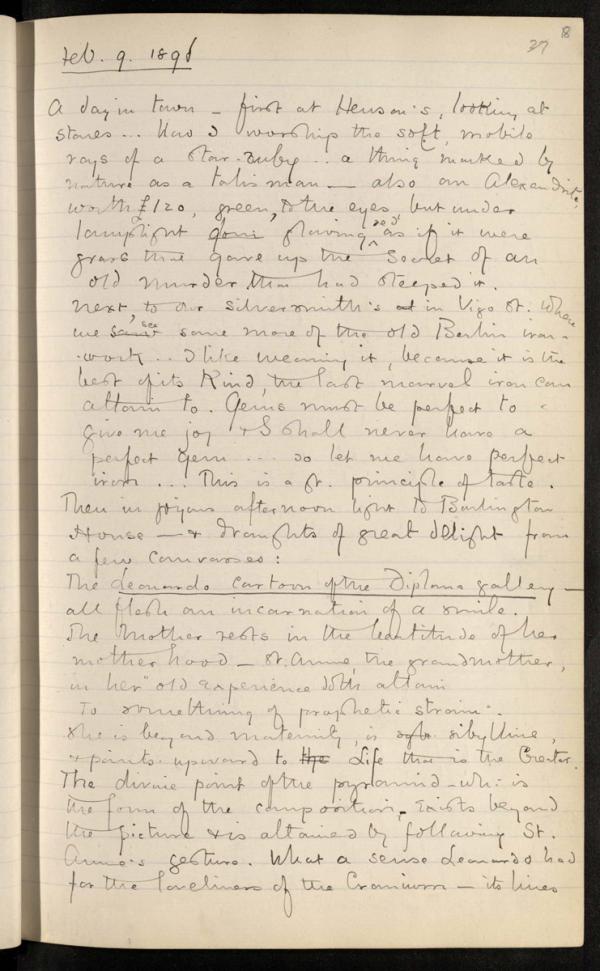 8
27
Feb. 9. 1896
A day in town — first at Henson's, looking at
stones... How I worship the soft, mobile
rays of a star-ruby... a thing marked by
nature as a talisman — also an Alexandrite,
worth £120, green, to the eyes, but under
lamplight glowing red as if it were
grass that gave up the secret of an
old murder that had steeped it.
Next, to our silversmith's at in Vigo St. where
we see some more of the old Berlin iron-
-work... I like wearing it, because it is the
best of its kind, the last marvel iron can
attain to. Gems must be perfect to
give me joy & I shall never have a
perfect gem... so let me have perfect
iron... This is a gt. principle of taste.
Then in joyous afternoon light to Burlington
House — & draughts of great delight from
a few canvases:
The Leonardo cartoon of the Diploma gallery —
all flesh an incarnation of a smile.
The Mother rests in the beatitude of her
motherhood — St. Anne, the grandmother,
in her "old experience doth attain
To something of prophetic strain".
She is beyond maternity, is sibylline,
& points upward to the Life that is the Creator.
The divine point of the pyramid — wh: is
the form of the composition, exists beyond
the picture & is attained by following St.
Anne's gesture. What a sense Leonardo had
for the loveliness of the Cranium — its lines